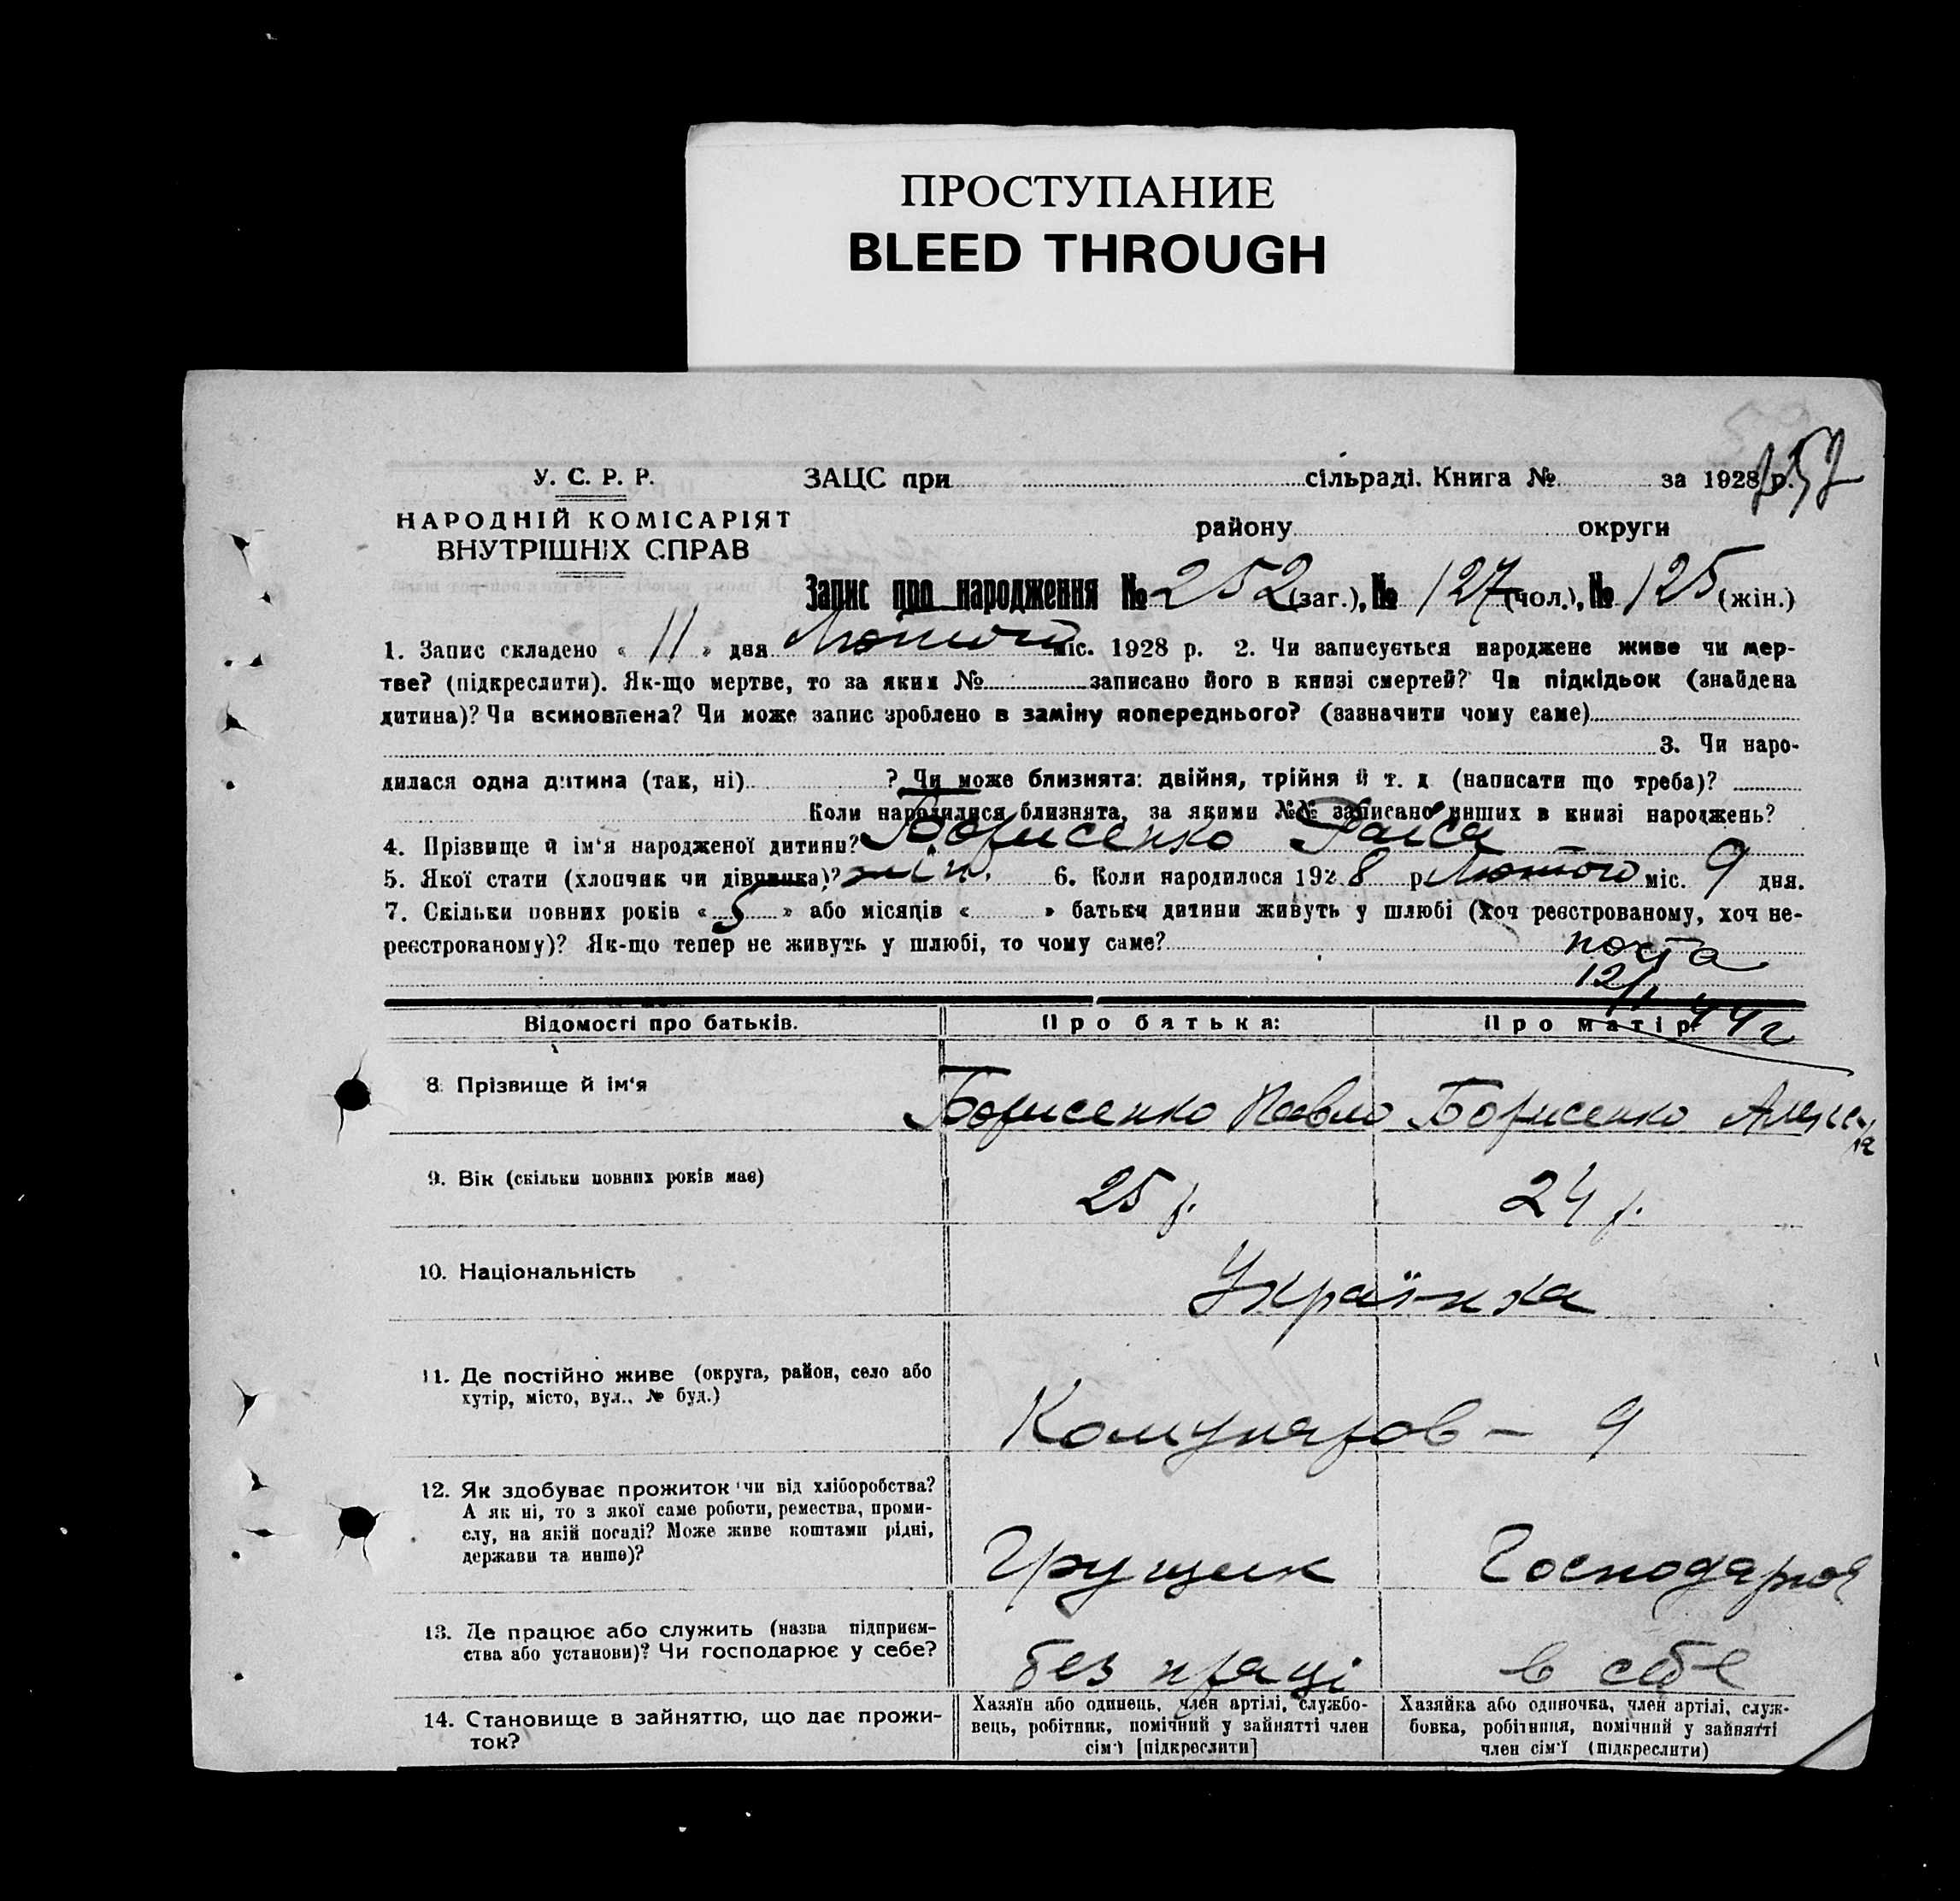 ПРОСТУПАНИЕ
BLEED THROUGH
257
У. С. Р. Р.
НАРОДНІЙ КОМІСАРІЯТ
ВНУТРІШНІХ СПРАВ
ЗАЦС при сільраді. Книга № за 1928 р.
району округи
Запис про народження № 252 (заг.), № 127 (чол.), № 125 (жін.)
1. Запис складено « 11 » дня Лютого міс. 1928 р. 2. Чи записується народжене живе чи мер-
тве? (підкреслити). Як-що мертве, то за яким № записано його в книзі смертей? Чи підкідьок (знайдена
дитина)? Чи всиновлена? Чи може запис зроблено в заміну попереднього? (зазначити чому саме)
3. Чи наро-
дилася одна дитина (так, ні) ? Чи може близнята: двійня, трійня й т. д (написати що треба)?
Коли народилися близнята, за якими №№ записано инших в книзі народжень?
4. Прізвище й ім'я народженої дитини? Борисенко Раиса
5. Якої стати (хлопчик чи дівчинка)? жін. 6. Коли народилося 1928 р. Лютого міс. 9 дня.
7. Скільки повних років « 5 » або місяців « » батьки дитини живуть у шлюбі (хоч реєстрованому, хоч не-
реєстрованому)? Як-що тепер не живуть у шлюбі, то чому саме?
12/
44 г
Відомості про батьків. Про батька: Про матір:
8. Прізвище й ім'я Борисенко Павло Борисенко
9. Вік (скільки повних років має) 25 р. 24 р.
10. Національність Українка
11. Де постійно живе (округа, район, село або
хутір, місто, вул., № буд.)
Комунаров – 9
12. Як здобуває прожиток чи від хліборобства?
А як ні, то з якої саме роботи, ремества, проми-
слу, на якій посаді? Може живе коштами рідні,
держави та инше)?
Грущик Господарюя
13. Де працює або служить (назва підприєм-
ства або установи)? Чи господарює у себе?
без праці в себе
14. Становище в зайняттю, що дає прожи-
ток?
Хазяїн або одинець, член артілі, службо-
вець, робітник, помічний у зайнятті член
сім'ї [підкреслити]
Хазяйка або одиночка, член артілі, служ-
бовка, робітниця, помічний у зайнятті
член сім'ї (підкреслити)